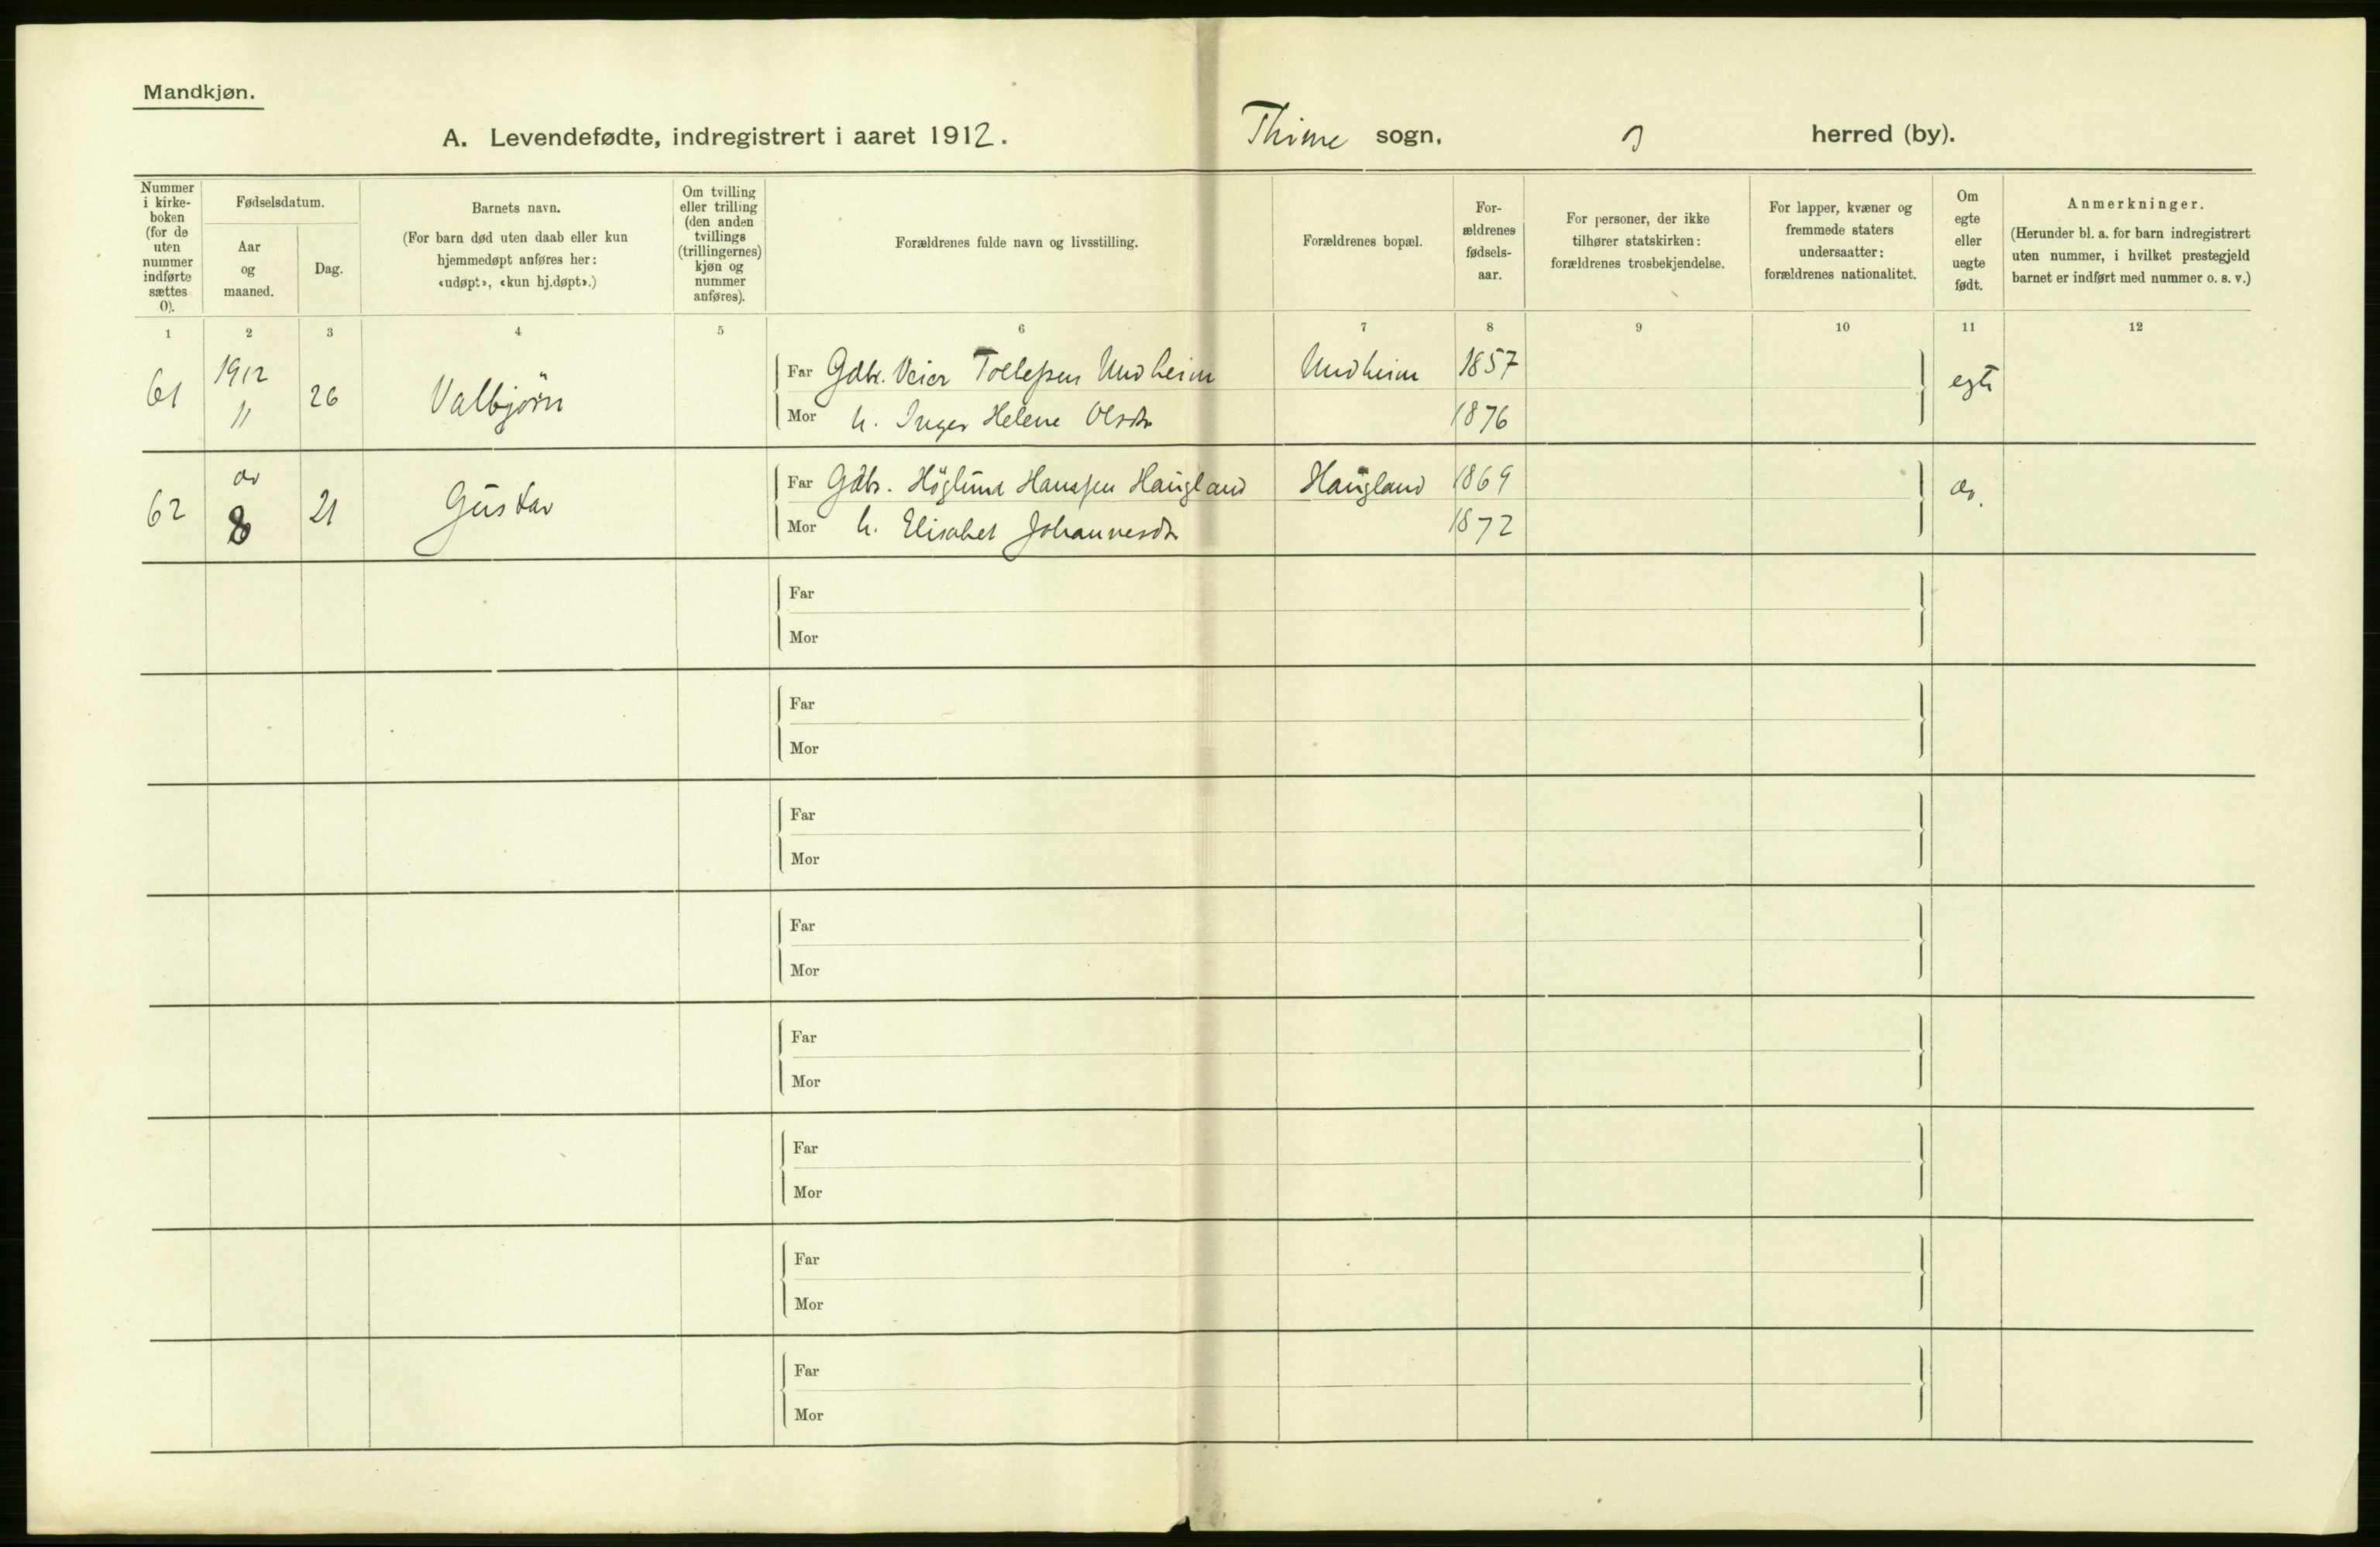 Mandkjøn.
A. Levendefødte, indregistrert i aaret 1912.
Thime sogn, herred (by).
Nummer
i kirke-
boken
(for de
uten
nummer
indførte
sættes
0).
Fødselsdatum.
Aar
og
maaned.
Dag.
Barnets navn.
(For barn død uten daab eller kun
hjemmedøpt anføres her:
«udøpt», «kun hj.døpt».)
Om tvilling
eller trilling
(den anden
tvillings
(trillingernes)
kjøn og
nummer
anføres).
Forældrenes fulde navn og livsstilling.
Forældrenes bopæl.
For-
ældrenes
fødsels-
aar.
For personer, der ikke
tilhører statskirken:
forældrenes trosbekjendelse.
For lapper, kvæner og
fremmede staters
undersaatter:
forældrenes nationalitet.
Om
egte
eller
uegte
født.
Anmerkninger.
(Herunder bl. a. for barn indregistrert
uten nummer, i hvilket prestegjeld
barnet er indført med nummer o. s. v.)
1 2 3 4 5 6 7 8 9 10 11 12
61 1912 11 26 Valbjörn
Far Gdbr. Veier Tollefsen Undheim Undheim 1857 egte
Mor h. Inger Helene Olsdr 1876
62 do 8 21 Gustav
Far Gdbr. Höglund Hanssen Haugland Haugland 1869 do.
Mor h. Elisabet Johannesdr 1872
Far
Mor
Far
Mor
Far
Mor
Far
Mor
Far
Mor
Far
Mor
Far
Mor
Far
Mor